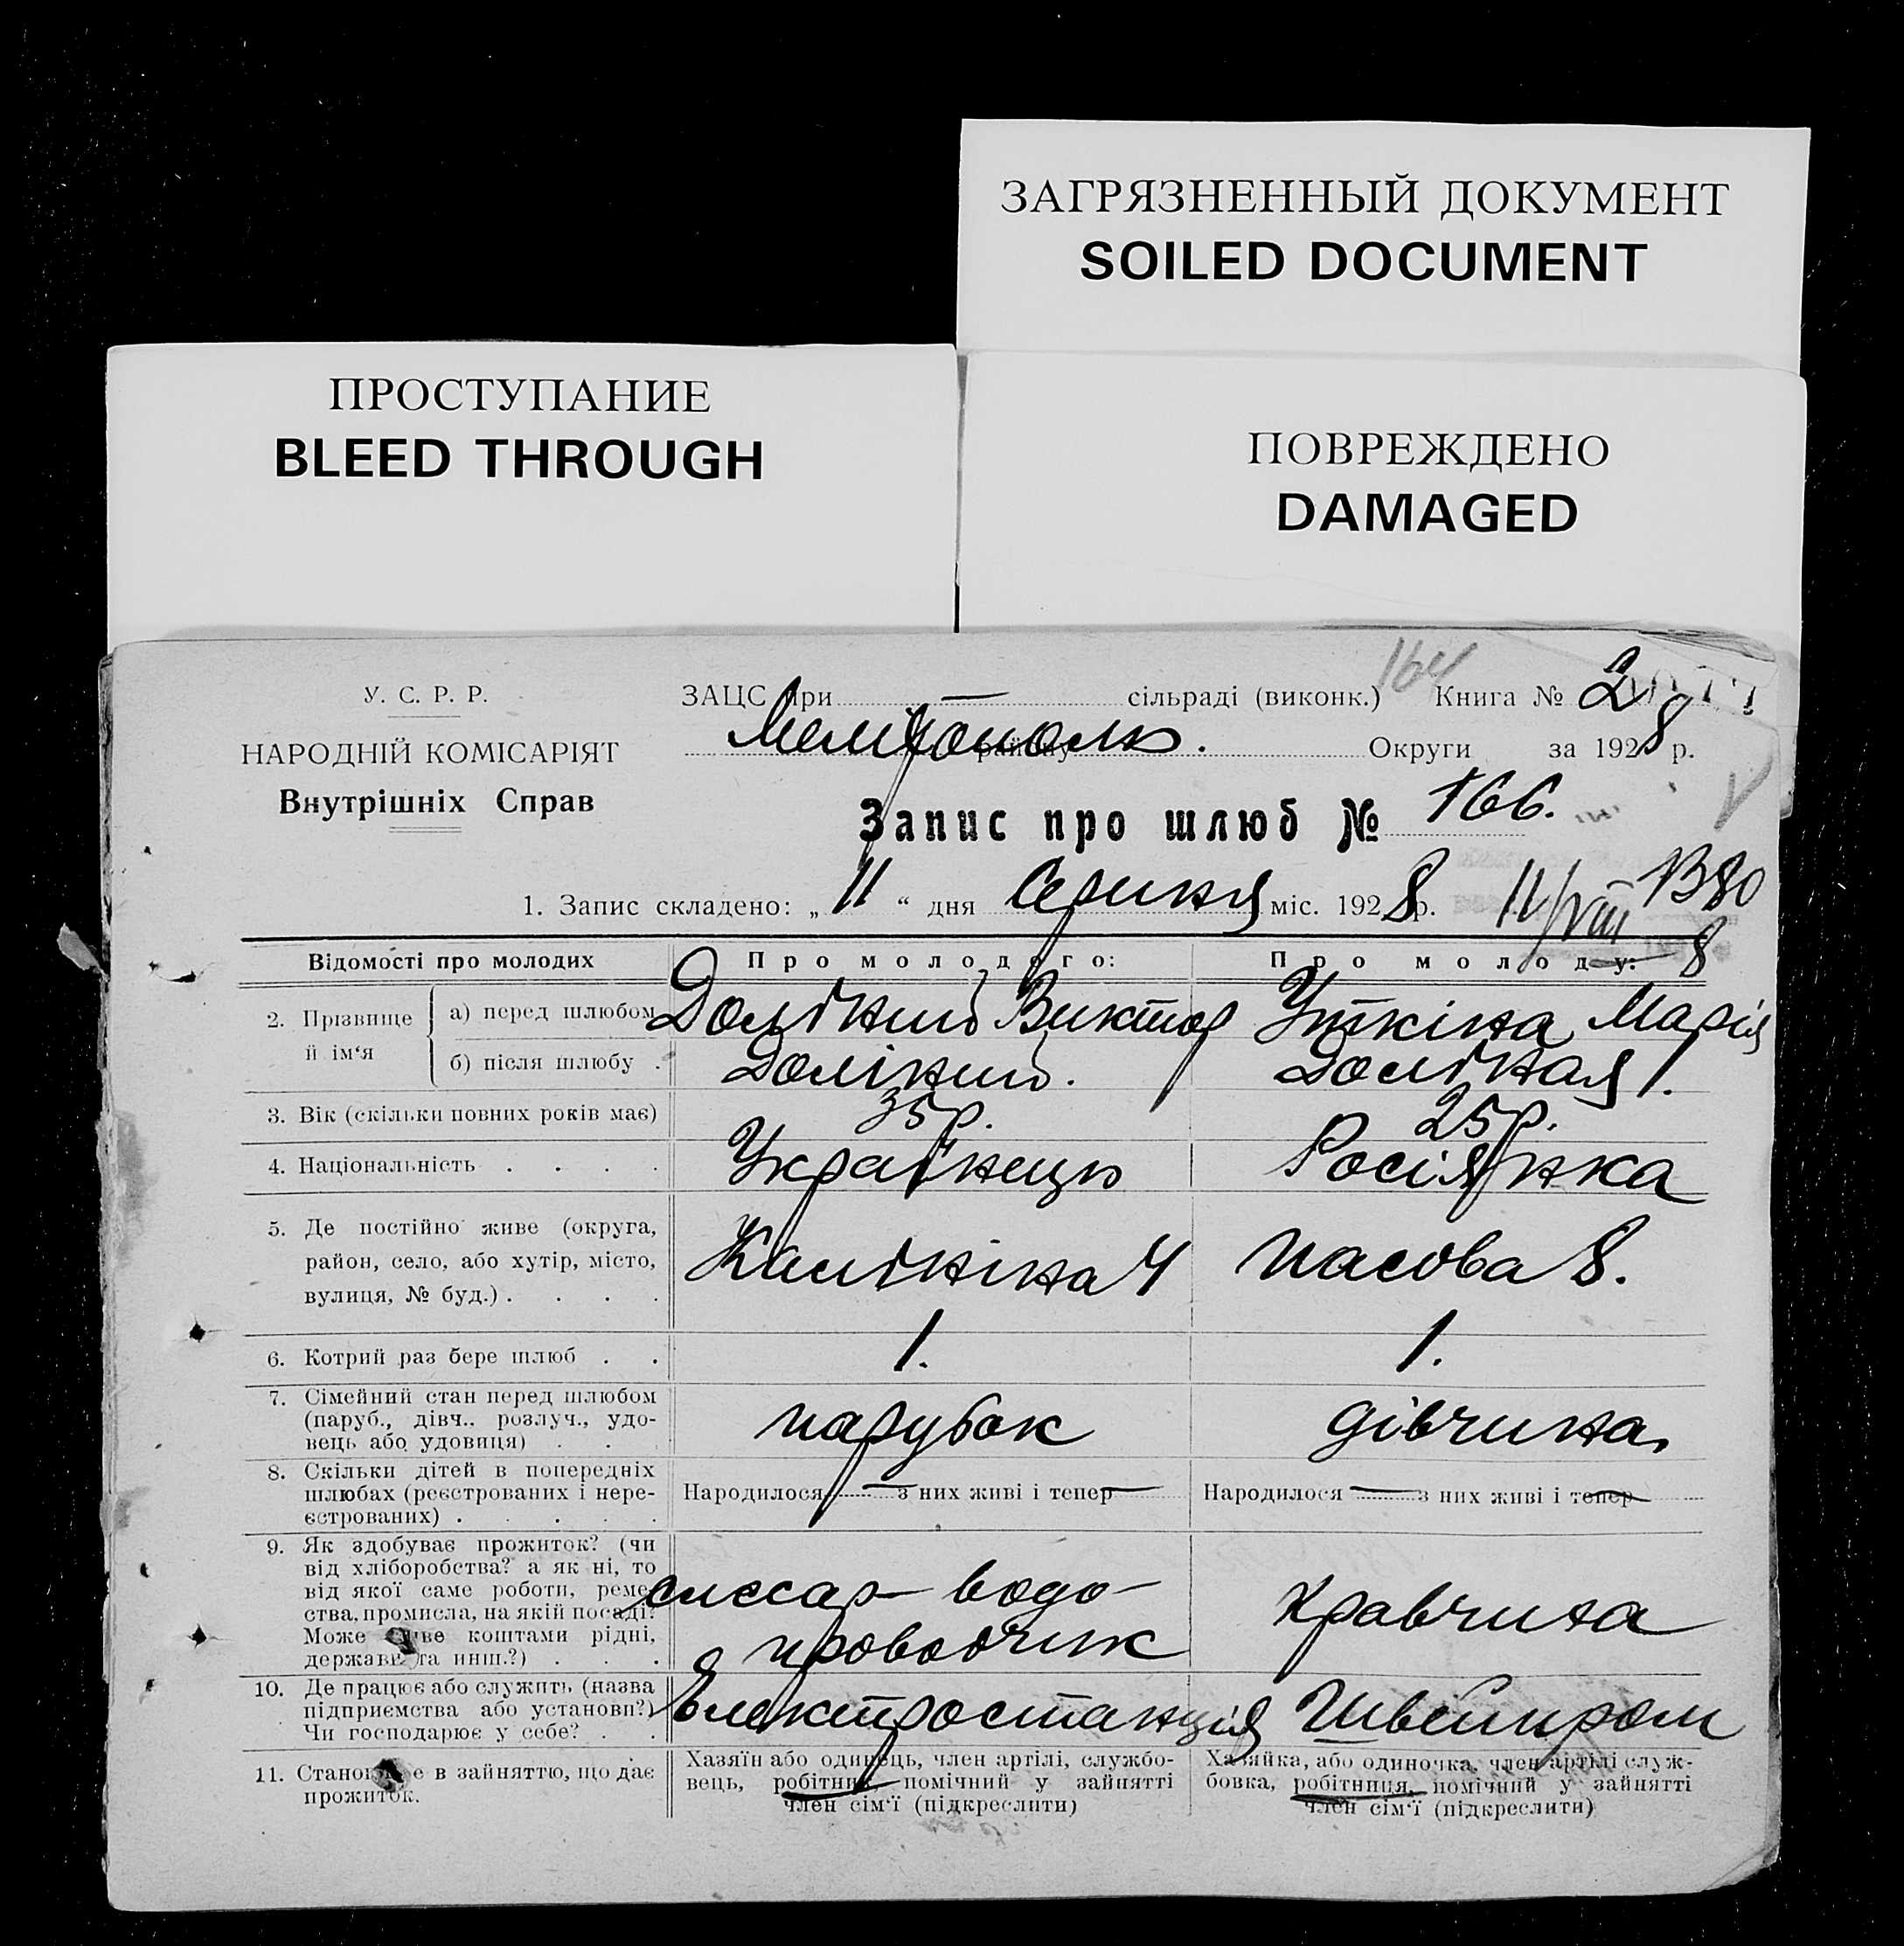 ЗАГРЯЗНЕННЫЙ ДОКУМЕНТ
SOILED DOCUMENT
ПРОСТУПАНИЕ
BLEED THROUGH
ПОВРЕЖДЕНО
DAMAGED
164
У. С. Р. Р.
ЗАЦС при — сільраді (виконк.) Книга № 2
НАРОДНІЙ КОМІСАРІЯТ
Мелітополь. району Округи за 1928 р.
Внутрішніх Справ
Запис про шлюб № 166.
1. Запис складено: „11“ дня Серпня міс. 1928 р. 11/VIII 8
Відомості про молодих Про молодого: Про молоду:
2. Прізвище й ім‘я
а) перед шлюбом Долікий Виктор Уткіна Марія
б) після шлюбу . Долікий. Долікая 1.
3. Вік (скільки повних років має) 35 р. 25 р.
4. Національність . . . . Українець Росіянка
5. Де постійно живе (округа,
район, село, або хутір, місто,
вулиця, № буд.) . . . . Калініна 4 Пасова 8.
6. Котрий раз бере шлюб . . 1. 1.
7. Сімейний стан перед шлюбом
(паруб., дівч.. розлуч., удо-
вець або удовиця) . . парубок дівчина.
8. Скільки дітей в попередніх
шлюбах (реєстрованих і нере-
єстрованих) . . . . . Народилося — з них живі і тепер — Народилося — з них живі і тепер —
9. Як здобуває прожиток? (чи
від хліборобства? а як ні, то
від якої саме роботи, реме-
ства, промисла, на якій посаді?
Може живе коштами рідні,
держави та инш.?) . . . слесар водо-
проводчик Кравчиха
10. Де працює або служить (назва
підприємства або установи?)
Чи господарює у себе? . . Електростанція Швейпром
11. Становище в зайняттю, що дає
прожиток.
Хазяїн або одинець, член артілі, службо-
вець, робітник, помічний у зайнятті
член сім‘ї (підкреслити)
Хазяйка, або одиночка, член артілі служ-
бовка, робітниця, помічний у зайнятті
член сім‘ї (підкреслити)